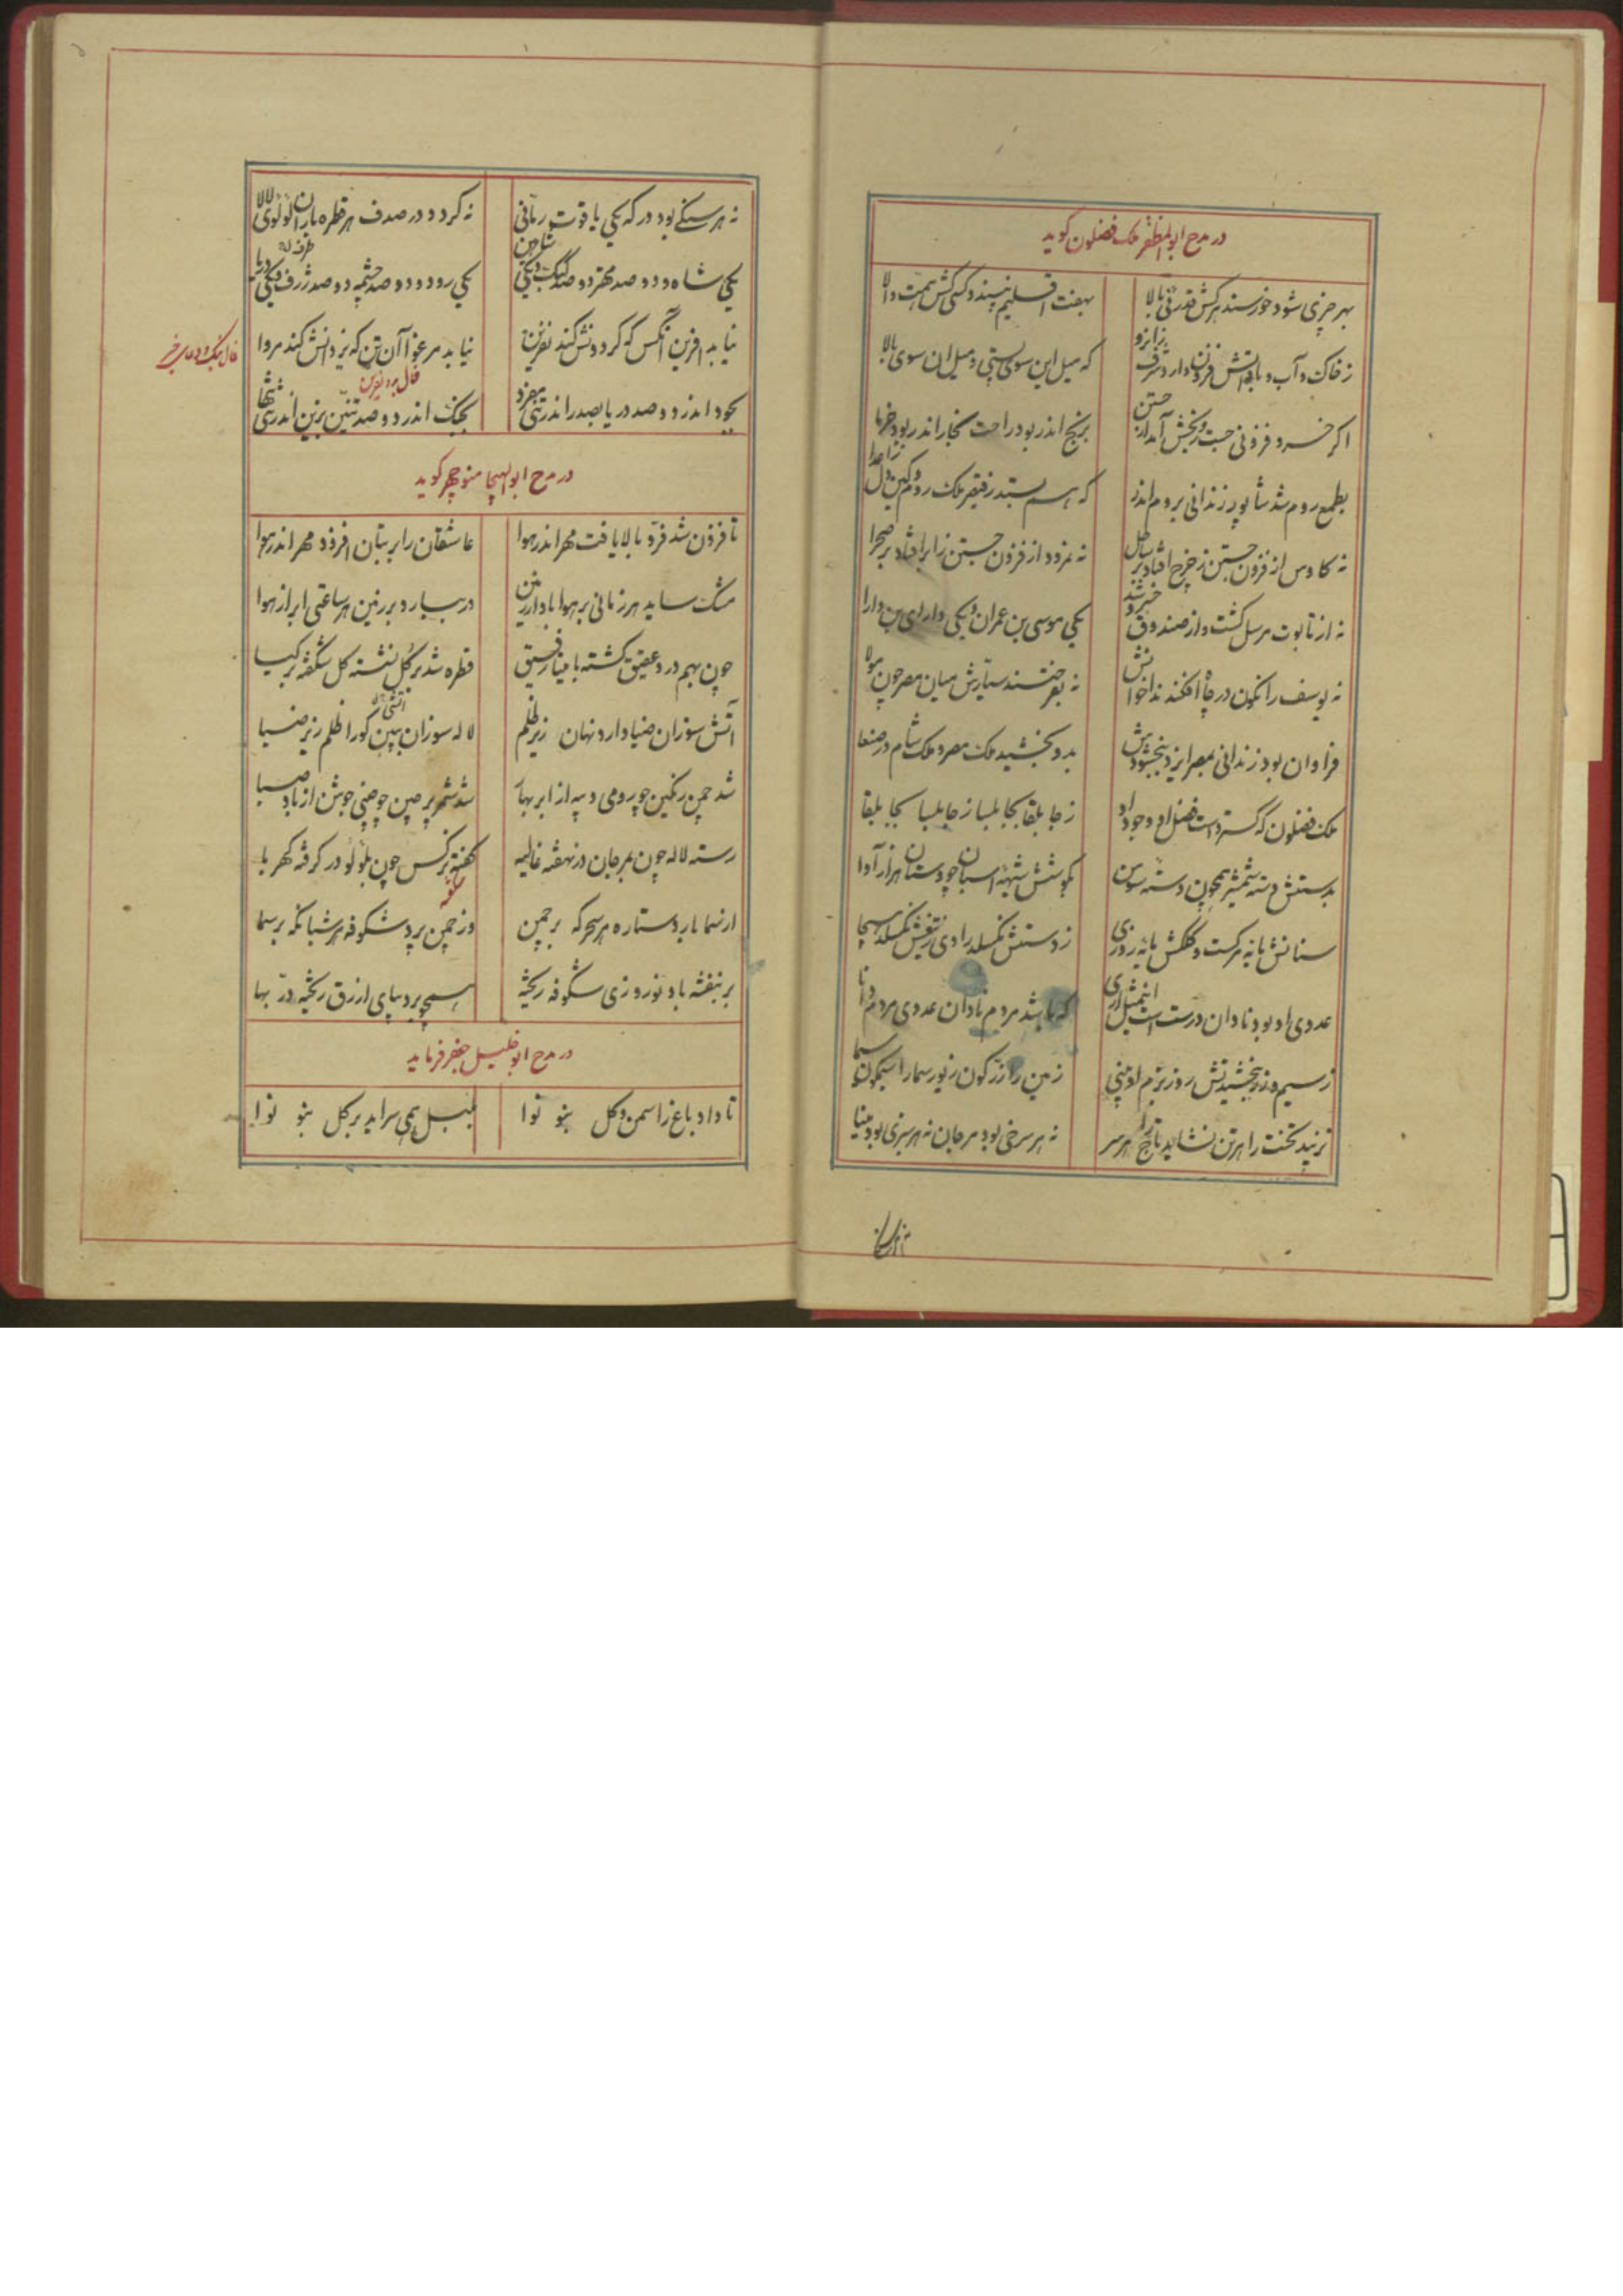 در مدح ابوالمظفر ملک فضلون گوید
بهر چیزی شود خورسند هرکش قدر نی بالا
بهفت اقلیم نپسندد کسی کش همت والا
ز خاک و آب و باد آتش فزون دارد شرف زانرو
که میل این سوی پستی و میل ان سوی بالا
اگر خسرو فزونی جست رنجش آمد از جستن
برنج اندر بود راحت بخار اندر بود خرما
بطمع روم شد شاپور زندانی بروم اندر
که هم بستد ز قیصر ملک روم و کین دل ز اعدا
نه کاوس از فزون جستن ز چرخ افتاد بر ساحل
نه نمرود از فزون جستن ز ابر افتاد بر صحرا
نه از تابوت مرسل گشت و از صندوق خسرو شد
یکی موسی بن عمران و یکی دارای بن دارا
نه یوسف را نگون در چاه افکندند اخوانش
نه بفروختند سیارش میان مصر چون مولا
فراوان بود زندانی بمصر ایزد ببخشودش
بدو بخشید ملک مصر و ملک شام و صنعا
ملک فضلون که گسترد است فضل او و جود او
ز جابلقا بجابلسا ز جابلسا بجابلقا
بدستش دسته شمشیر همچون دسته سوسن
بگوشش شیهه اسبان چو دستان هزار آوا
سنانش مایه مرگست و کلکش مایه روزی
ز دستش نگسلد رادی ز تیغش نگسلد هیجا
عدوی او بود نادان درست است این مثل آری
که باشد مردم نادان عدوی مردم دانا
ز سیم و زر بخشیدنش روز بزم او بینی
زمین را زرگون زیور سما را سیمگون سیما
نزیبد تخت را هر تن نشاید تاج را هر سر
نه هر سرخی بود مرجان نه هر سبزی بود مینا
نه هر سنگی بود در که یکی یاقوت رمانی
نه گردد در صدف هر قطره باران لؤلؤی لالا
یکی شاه و دو صد مهتر دو صد گنگ و یکی شاهین
یکی رود و دو صد چشمه دو صد ژرف و یکی دریا
نیابد افرین آنکس که گردونش کند نفرین
نیابد مرغوا آن تن که یزدانش کند مروا
فال نیک و دعای خیر
فال بد و نفرین
بجود اندر دو صد دریا بصدر اندر تنی مفرد
بجنگ اندر دو صد تنین بزین اندر تنی تنها
در مدح ابوالهیجا منوچهر گوید
تا فزون شد فر و بالا یافت مهر اندر هوا
عاشقان را بر بتان افزود مهر اندر هوا
مشک ساید هر زمانی بر هوا باد از زمین
در ببارد بر زمین هر ساعتی ابر از هوا
چون بهم در و عقیق گشته با مینا رفیق
قطره شد بر گل نشسته گل شکفته بر گیا
آتش سوزان ضیا دارد نهان زیر ظلم
لاله سوزان ببین کو را ظلم زیر ضیا
شد چمن رنگین چو رومی دیبه از ابر بهار
شد شمر پر چین چو چینی جوشن از باد صبا
رسته لاله چون بمرجان در نهفته غالیه
کفته نرگس چون بلؤلؤ در گرفته کهربا
از سما بارد ستاره هر سحرگه بر چمن
وز چمن پرد شکوفه هر شبانگه بر سما
بر بنفشه باد نوروزی شکوفه ریخته
همچو بر دیبای ازرق ریخته در بها
در مدح ابوخلیل جعفر فرماید
تا داد باغ را سمن و گل بنو نوا
بلبل همی سراید بر گل بنو نوا